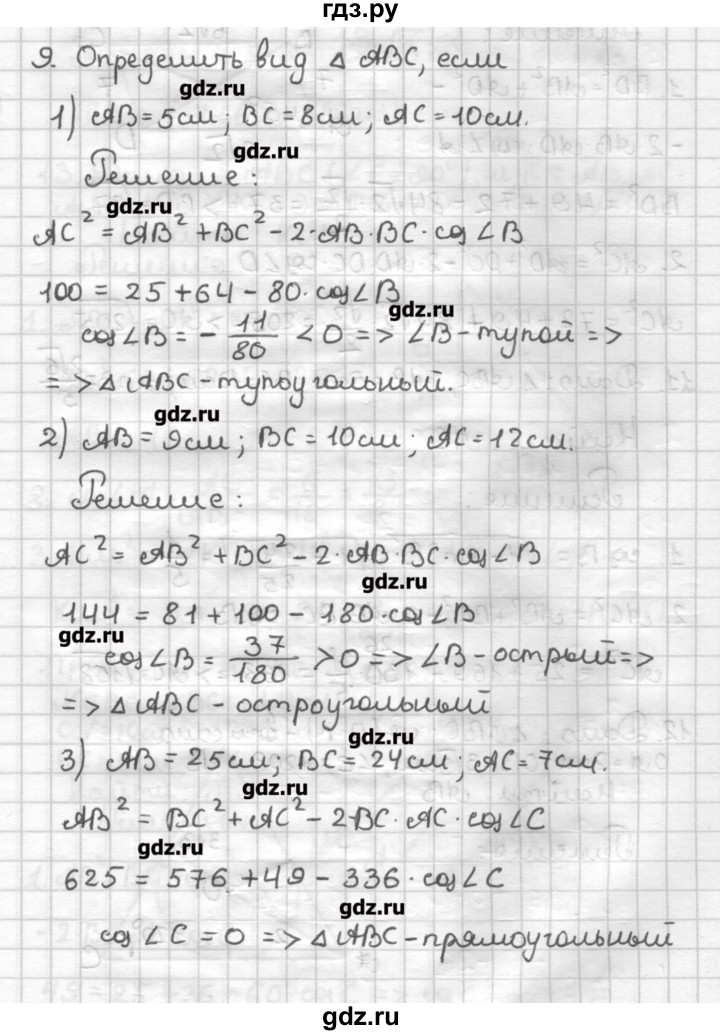 гдз.ру
9. Определить вид △ ABC, если
gdz.ru
1) AB = 5см; BC = 8см; AC = 10см.
gdz.ru
Решение:
gdz.ru
AC² = AB² + BC² - 2·AB·BC·cos∠B
100 = 25 + 64 - 80·cos∠B
gdz.ru
cos∠B = - 11/80 < 0 => ∠B - тупой =>
=> △ ABC - тупоугольный.
gdz.ru
2) AB = 9см; BC = 10см; AC = 12см.
Решение:
AC² = AB² + BC² - 2·AB·BC·cos∠B
gdz.ru
144 = 81 + 100 - 180·cos∠B
gdz.ru
cos∠B = 37/180 > 0 => ∠B - острый =>
=> △ ABC - остроугольный
gdz.ru
3) AB = 25см; BC = 24см; AC = 7см.
gdz.ru
AB² = BC² + AC² - 2·BC·AC·cos∠C
gdz.ru
625 = 576 + 49 - 336·cos∠C
gdz.ru
cos∠C = 0 => △ ABC - прямоугольный
gdz.ru